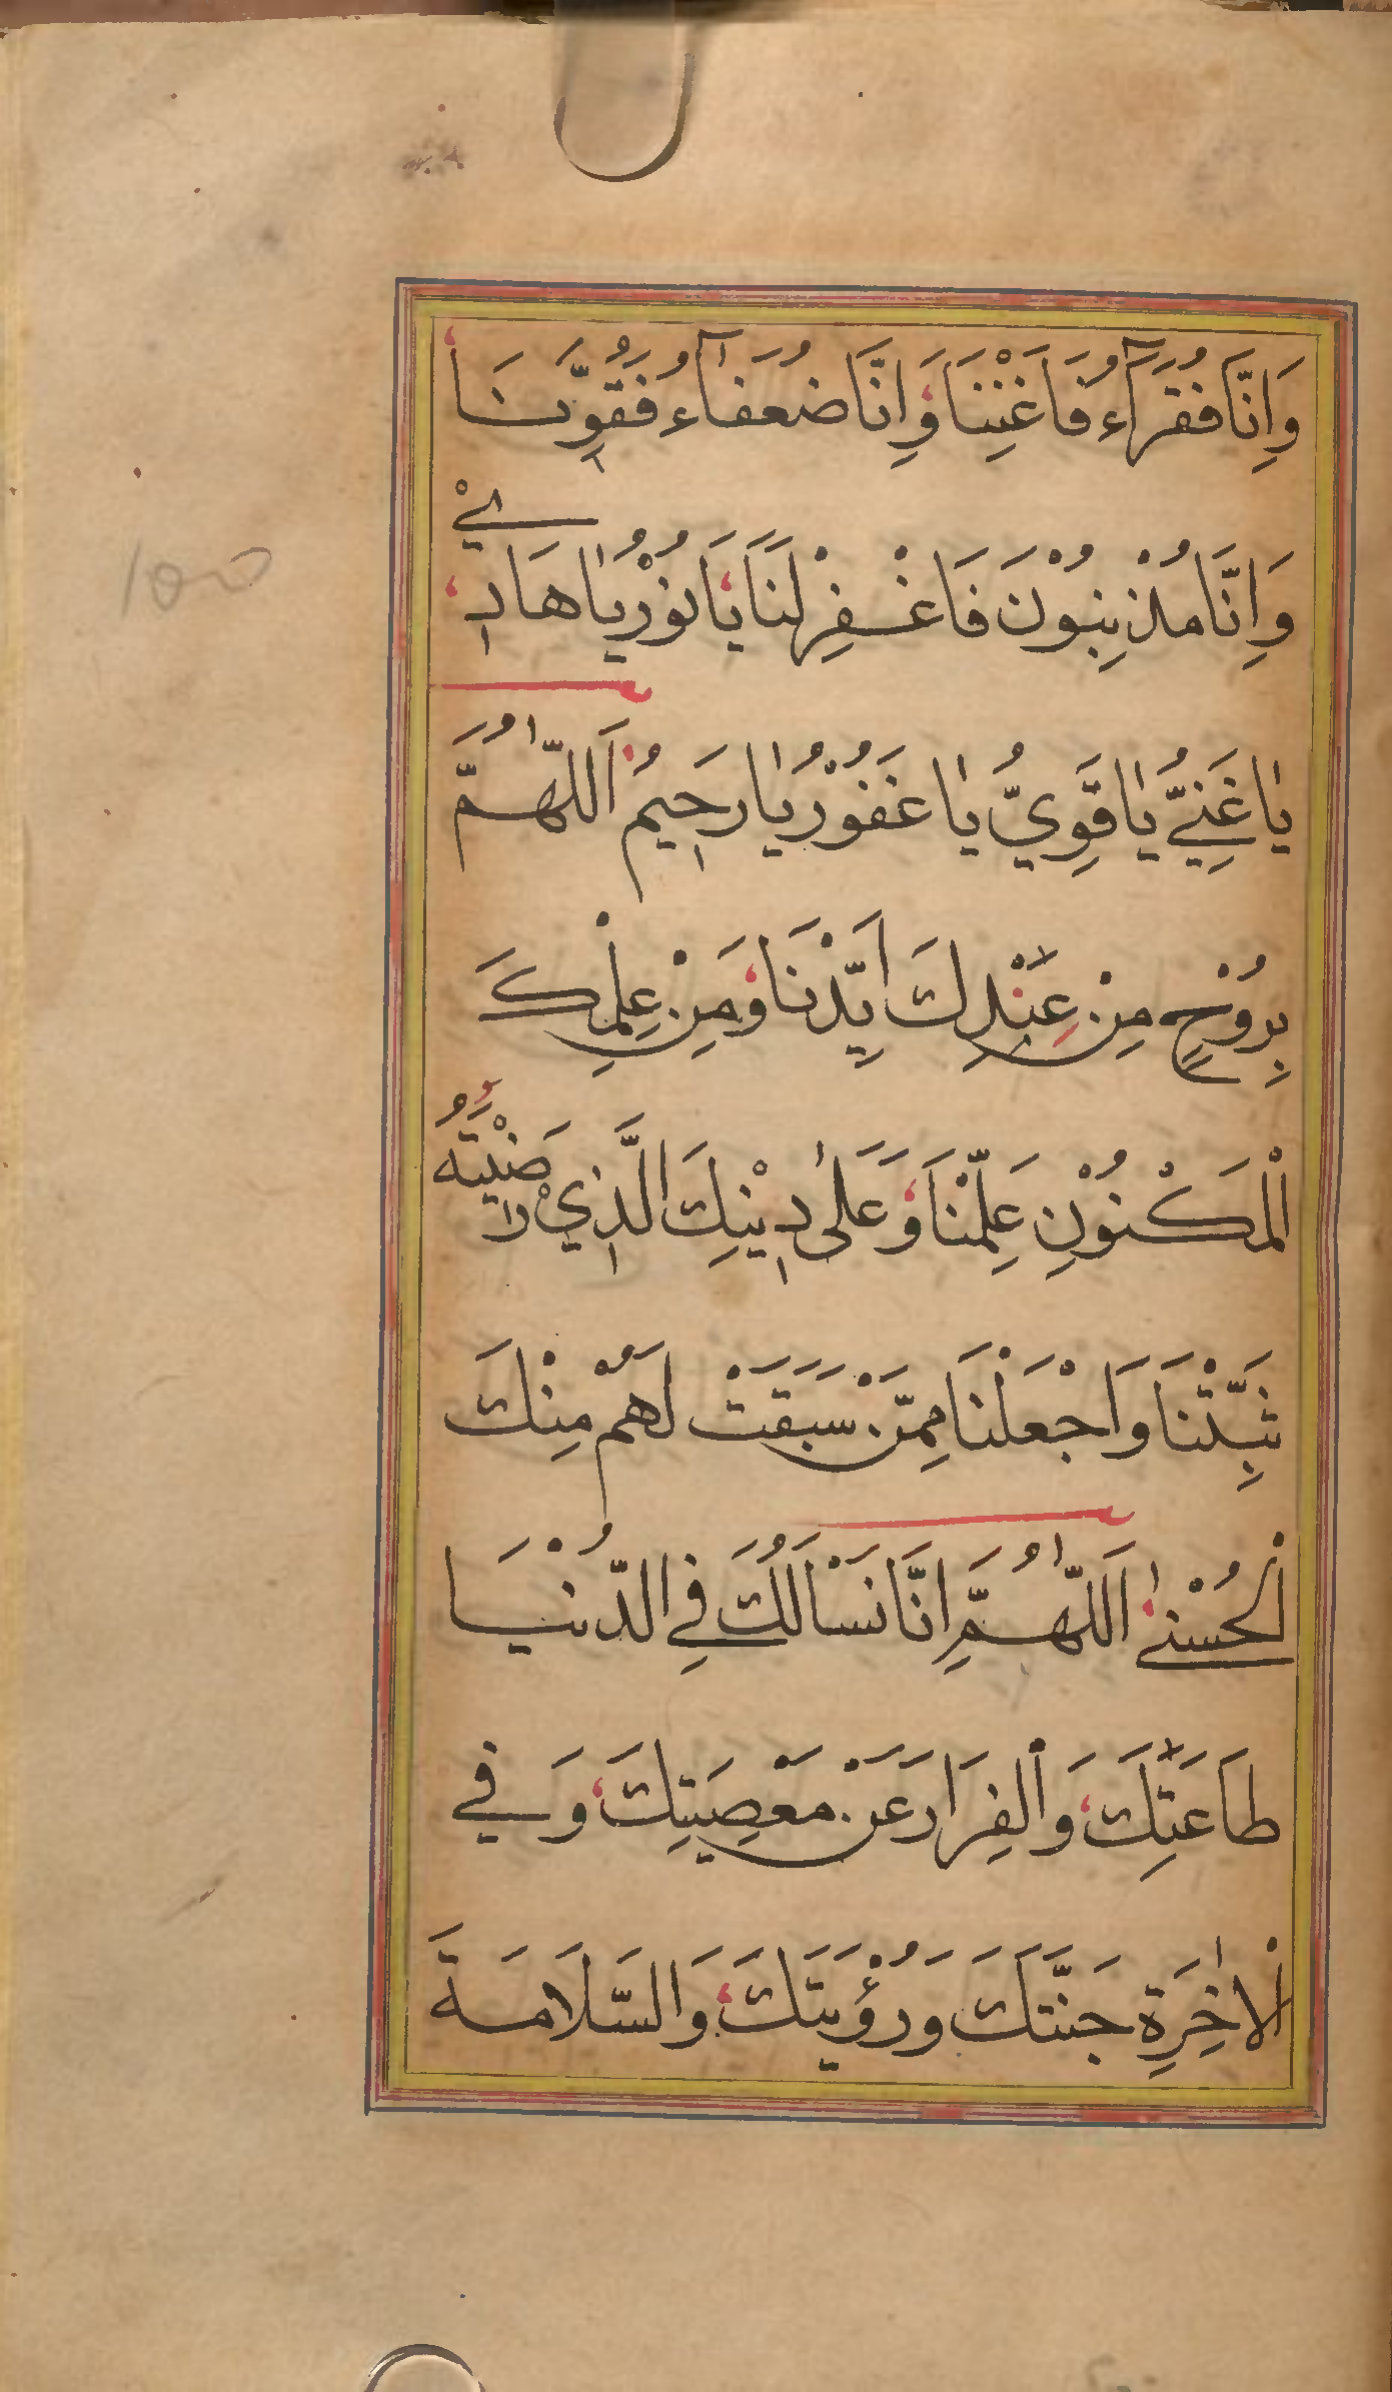 وَاِنَّا فُقَرَآءُ فَاَغْنِنَا وَاِنَّا ضُعَفَآءُ فَقَوِّنَا
وَاِنَّا مُذْنِبُوْنَ فَاغْفِرْ لَنَا يَا نُوْرُ يَا هَادِيْ
يَا غَنِيُّ يَا قَوِيُّ يَا غَفُوْرُ يَا رَحِيمُ اَللّٰهُمَّ
بِرُوْحٍ مِنْ عِنْدِكَ اَيِّدْنَا وَمِنْ عِلْمِكَ
الْمَكْنُوْنِ عَلِّمْنَا وَعَلىٰ دِيْنِكَ الَّذِيْ رَضَيْتَهُ
ثَبِّتْنَا وَاجْعَلْنَا مِمَّنْ سَبَقَتْ لَهُمْ مِنْكَ
الْحُسْنىٰ اَللّٰهُمَّ اِنَّا نَسْاَلُكَ فِي الدُّنْيَا
طَاعَتِكَ وَالْفِرَارَ عَنْ مَعْصِيَتِكَ وَفي
الْاٰخِرَةِ جَنَّتَكَ وَرُؤْيَتَكَ وَالسَّلَامَةَ